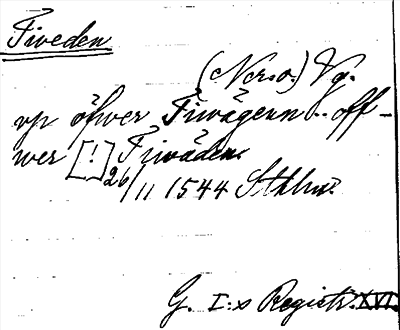 Tiveden
(Ner. o.) Vg.
vp öffver Tiwägenn .. off-
wer [!] Tiwäden
26/11 1544 Sthlm
G. I:s Registr. XVI.